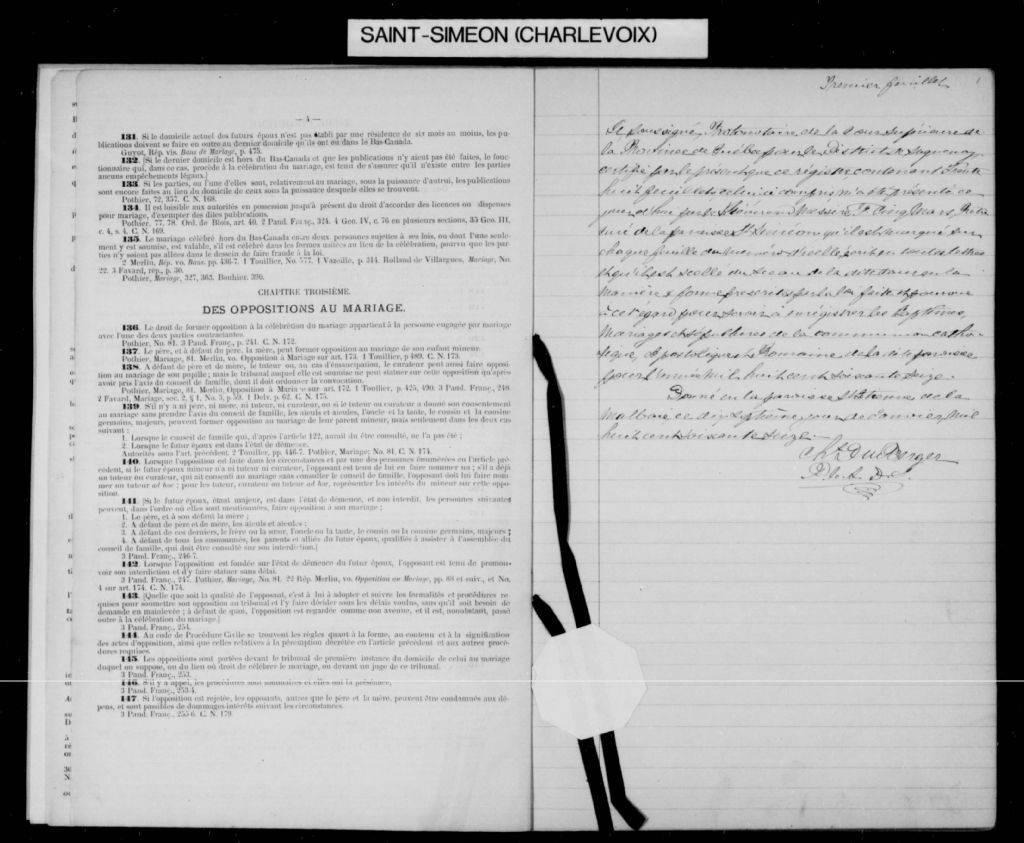 SAINT-SIMEON (CHARLEVOIX)
— 4 —
131. Si le domicile actuel des futurs époux n'est pas établi par une résidence de six mois au moins, les pu-
blications doivent se faire en outre au dernier domicile qu'ils ont eu dans le Bas-Canada.
Guyot, Rép. vis. Bans de Mariage, p. 475.
132. [Si le dernier domicile est hors du Bas-Canada et que les publications n'y aient pas été faites, le fonc-
tionnaire qui, dans ce cas, procède à la célébration du mariage, est tenu de s'assurer qu'il n'existe entre les parties
aucuns empêchements légaux.]
133. Si les parties, ou l'une d'elles sont, relativement au mariage, sous la puissance d'autrui, les publications
sont encore faites au lieu du domicile de ceux sous la puissance desquels elles se trouvent.
Pothier, 72, 357. C. N. 168.
134. Il est loisible aux autorités en possession jusqu'à présent du droit d'accorder des licences ou dispenses
pour mariage, d'exempter des dites publications.
Pothier, 77, 78. Ord. de Blois, art. 40. 2 Pand. Franç., 324. 4 Geo. IV, c. 76 en plusieurs sections, 35 Geo. III,
c. 4, s. 4. C. N. 169.
135. Le mariage célébré hors du Bas-Canada entre deux personnes sujettes à ses lois, ou dont l'une seule-
ment y est soumise, est valable, s'il est célébré dans les formes usitées au lieu de la célébration, pourvu que les par-
ties n'y soient pas allées dans le dessein de faire fraude à la loi.
2 Merlin, Rép. vo. Bans, pp. 436-7. 1 Toullier, No. 577. 1 Vazeille, p. 314. Rolland de Villargues, Mariage, No.
22. 3 Favard, rép., p. 30.
Pothier, Mariage, 327, 363. Bouhier. 390.
CHAPITRE TROISIÈME.
DES OPPOSITIONS AU MARIAGE.
136. Le droit de former opposition à la célébration du mariage appartient à la personne engagée par mariage
avec l'une des deux parties contractantes.
Pothier, No. 81. 3 Pand. Franç., p. 241. C. N. 172.
137. Le père, et à défaut du père, la mère, peut former opposition au mariage de son enfant mineur.
Pothier, Mariage, 81. Merlin, vo. Opposition à Mariage sur art. 173. 1 Toullier, p. 489. C. N. 173.
138. A défaut de père et de mère, le tuteur ou, au cas d'émancipation, le curateur peut aussi faire opposi-
tion au mariage de son pupille ; mais le tribunal auquel elle est soumise ne peut statuer sur cette opposition qu'après
avoir pris l'avis du conseil de famille, dont il doit ordonner la convocation.
Pothier, Mariage, 81. Merlin, Opposition à Mariage sur art. 172. 1 Toullier, p. 425, 490. 3 Pand. Franç., 248.
2 Favard, Mariage, sec. 2, § 1, No. 3, p. 59. 1 Delv. p. 62. C. N. 175.
139. S'il n'y a ni père, ni mère, ni tuteur, ni curateur, ou si le tuteur ou curateur a donné son consentement
au mariage sans prendre l'avis du conseil de famille, les aïeuls et aïeules, l'oncle et la tante, le cousin et la cousine
germains, majeurs, peuvent former opposition au mariage de leur parent mineur, mais seulement dans les deux cas
suivant :
1. Lorsque le conseil de famille qui, d'après l'article 122, aurait du être consulté, ne l'a pas été ;
2. Lorsque le futur époux est dans l'état de démence.
Autorités sous l'art. précédent. 2 Toullier, pp. 446-7. Pothier, Mariage; No. 81. C. N. 174.
140. Lorsque l'opposition est faite dans les circonstances et par une des personnes énumérées en l'article pré-
cédent, si le futur époux mineur n'a ni tuteur ni curateur, l'opposant est tenu de lui en faire nommer un ; s'il a déjà
un tuteur ou curateur, qui ait consenti au mariage sans consulter le conseil de famille, l'opposant doit lui faire nom-
mer un tuteur ad hoc ; pour les tuteur, curateur ou tuteur ad hoc, représenter les intérêts du mineur sur cette oppo-
sition.
141. [Si le futur époux, étant majeur, est dans l'état de démence, et non interdit, les personnes suivantes
peuvent, dans l'ordre où elles sont mentionnées, faire opposition à son mariage ;
1. Le père, et à son défaut la mère ;
2. A défaut de père et de mère, les aïeuls et aïeules ;
3. A défaut de ces derniers, le frère ou la sœur, l'oncle ou la tante, le cousin ou la cousine germains, majeurs ;
4. A défaut de tous les susnommés, les parents et alliés du futur époux, qualifiés à assister à l'assemblée du
conseil de famille, qui doit être consulté sur son interdiction.]
3 Pand. Franç., 246-7.
142. Lorsque l'opposition est fondée sur l'état de démence du futur époux, l'opposant est tenu de promou-
voir son interdiction et d'y faire statuer sans délai.
3 Pand. Franç., 247. Pothier, Mariage, No. 81. 22 Rép. Merlin, vo. Opposition au Mariage, pp. 68 et suiv., et No.
4 sur art. 174. C. N. 174.
143. [Quelle que soit la qualité de l'opposant, c'est à lui à adopter et suivre les formalités et procédures re-
quises pour soumettre son opposition au tribunal et l'y faire décider sous les délais voulus, sans qu'il soit besoin de
demande en mainlevée ; à défaut de quoi, l'opposition est regardée comme non avenue, et il est, nonobstant, passé
outre à la célébration du mariage.]
3 Pand. Franç., 254.
144. Au code de Procédure Civile se trouvent les règles quant à la forme, au contenu et à la signification
des actes d'opposition, ainsi que celles relatives à la péremption décrétée en l'article précédent et aux autres procé-
dures requises.
145. Les oppositions sont portées devant le tribunal de première instance du domicile de celui au mariage
duquel on s'oppose, ou du lieu où doit de célébrer le mariage, ou devant un juge de ce tribunal.
3 Pand. Franç., 253.
146. S'il y a appel, les procédures sont sommaires et elles ont la préséance.
3 Pand. Franç., 253-4.
147. Si l'opposition est rejetée, les opposants, autres que le père et la mère, peuvent être condamnés aux dé-
pens, et sont passibles de dommages-intérêts suivant les circonstances.
3 Pand. Franç., 255-6. C. N. 179.
Premier feuillet
1
Je soussigné, Protonotaire de la Cour Supérieure de
la Province de Québec pour le District de Saguenay
certifie par le présent que ce régistre contenant Trente
huit feuillets celui-ci compris m'a été présenté ce
jourd'hui par le Révérend Messire F. Cinq Mars, Prêtre
curé de la paroisse St Siméon qu'il est marqué sur
chaque feuille du numéro d'icelle écrit en toutes lettres
et qu'il est scellé du sceau de la dite cour en la
manière & forme prescrites par la loi faite et pourvue
à cet égard, pour servir à enregistrer les Baptêmes,
Mariages et sépultures de la communion catho-
lique, apostolique & Romaine de la dite paroisse
pour l'année mil huit cent soixante seize.
Donné en la paroisse St Etienne de la
Malbaie ce dix septième jour de Janvier, Mil
huit cent soixante seize.
Chs DuBerger